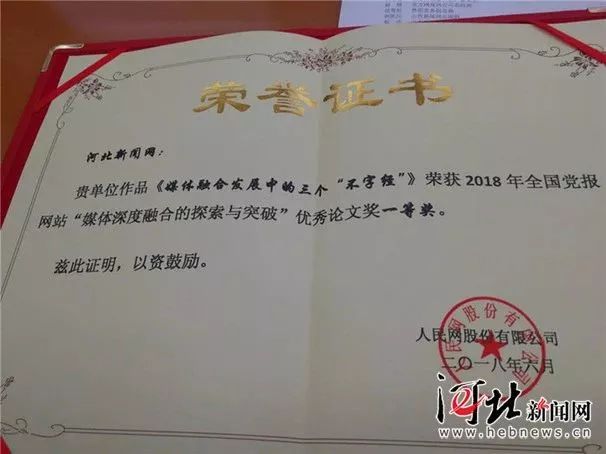 荣誉证书
河北新闻网：
贵单位作品《媒体融合发展中的三个“不字经”》荣获2018年全国党报
网站“媒体深度融合的探索与突破”优秀论文奖一等奖。
兹此证明，以资鼓励。
人民网股份有限公司
二〇一八年六月
人民网股份有限公司
河北新闻网
www.hebnews.cn